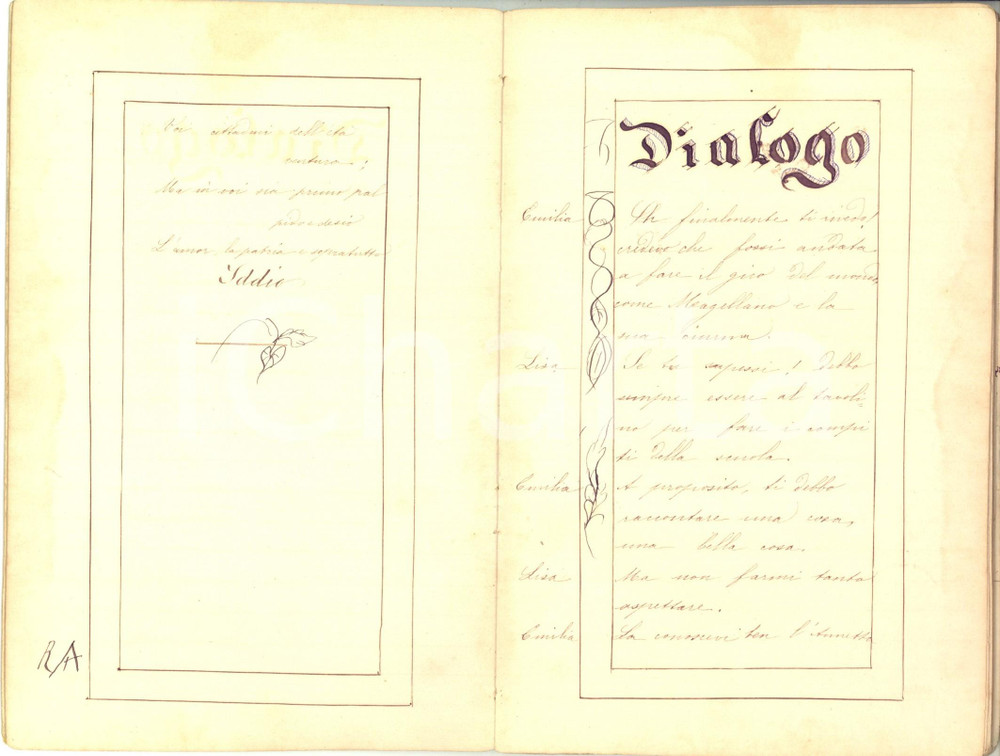 Voi cittadini dell'età
ventura;
Ma in voi sia primo pal
pito e desio
L'amor, la patria e sopratutto
Iddio
RA
Dialogo
Emilia Oh finalmente ti vedo!
credevo che fossi andata
a fare il giro del mondo,
come Magellano e la
sua ciurma.
Lisa Se tu sapessi! debbo
sempre essere al tavoli-
no per fare i compi
ti della scuola.
Emilia A proposito, ti debbo
raccontare una cosa,
una bella cosa.
Lisa Ma non farmi tanto
aspettare.
Emilia La conoscevi l'Annetta